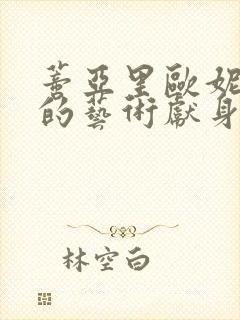 蕾亞里歐妮
的藝術獻身
林空白